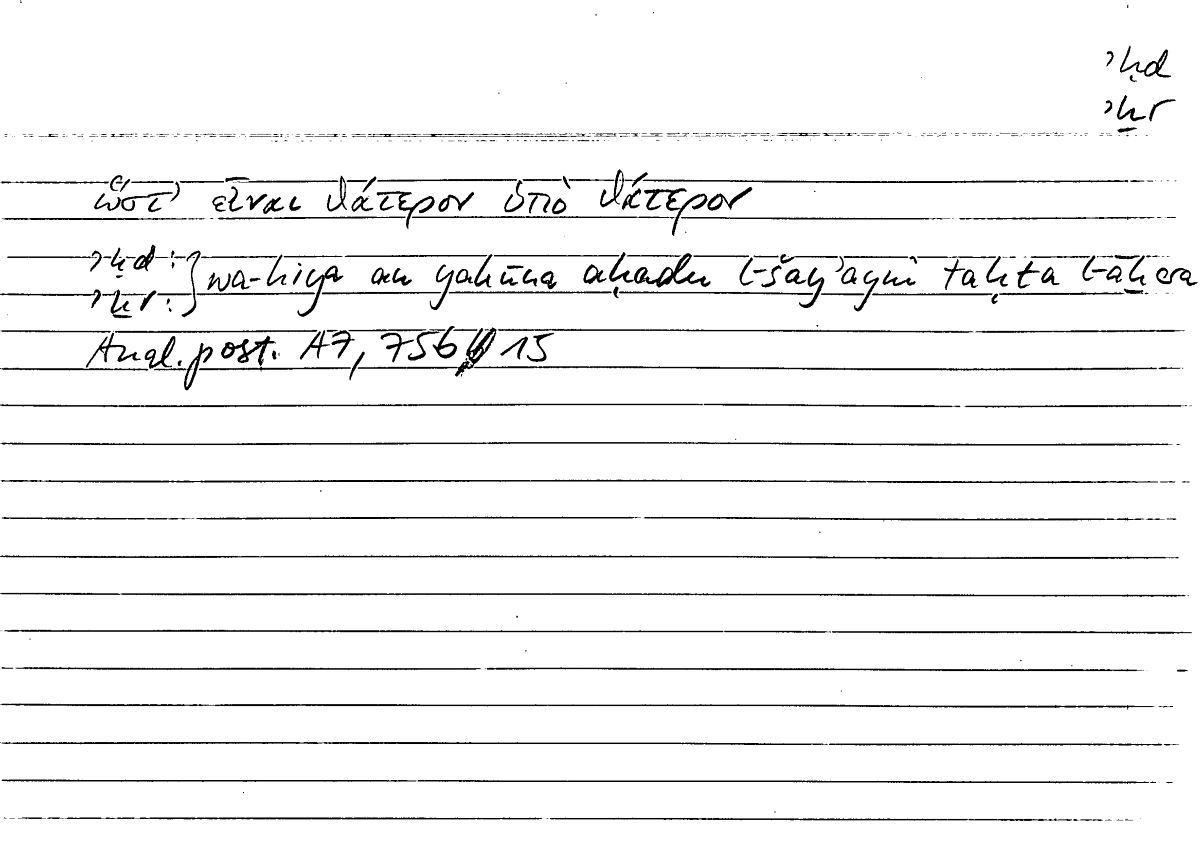 ʾḥd
ʾḫr
ὥστ’ εἶναι θάτερον ὑπὸ θάτερον
ʾḥd : } wa-hiya an yakūna aḥadu l-šayʾayni taḥta l-āḫara
ʾḫr : }
Anal. post. A7, 75b 15